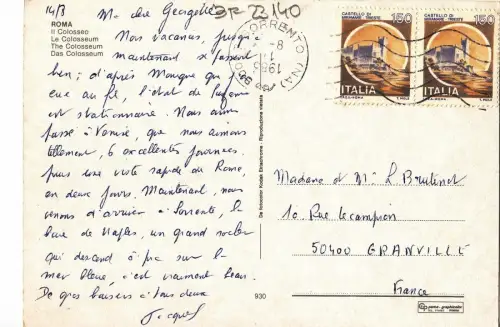 14/8
ROMA
Il Colosseo
Le Colosseum
The Colosseum
Das Colosseum
Ma chère Georgette
Nos vacances, jusqu'à
maintenant se passent
bien ; d'après Monique que j'ai
eue au fil, l'état de
est stationnaire. Nous avons
passé à Venise, que nous aimons
tellement, 6 excellentes journées.
puis une visite rapide de Rome,
en deux jours. Maintenant, nous
venons d'arriver à Sorrente, la
baie de Naples, un grand rocher
qui descend à pic sur la
mer bleue, c'est vraiment beau.
De gros baisers à tous deux
Jacques
SORRENTO (NA)
CASTELLO DI
MIRAMARE TRIESTE
150
ITALIA
CASTELLO DI
MIRAMARE TRIESTE
150
ITALIA
Madame et Mr L. Brutinot
10 Rue Lecampion
50400 GRANVILLE
France
930